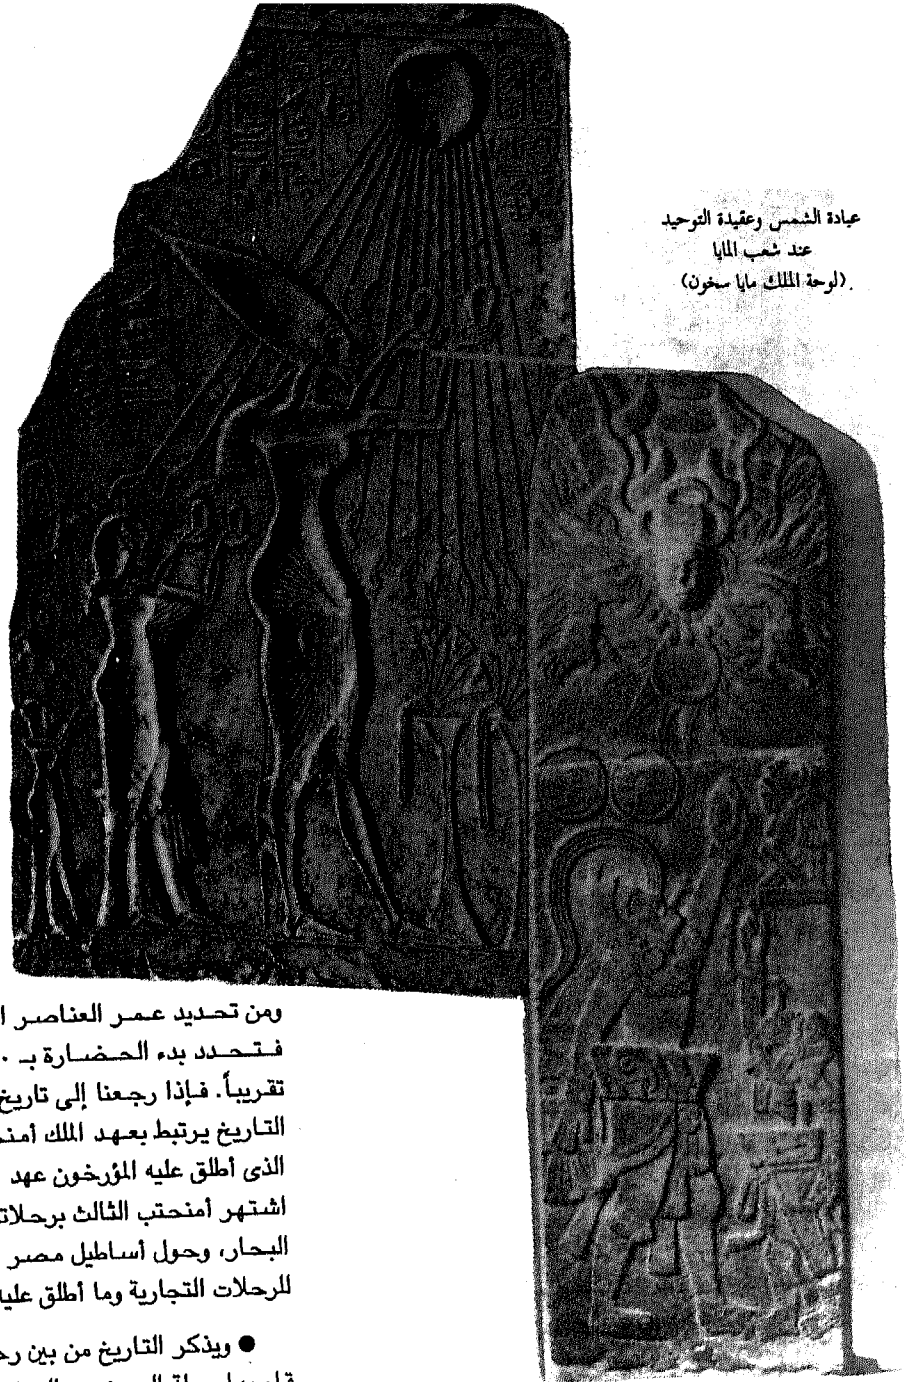 عبادة الشمس وعقيدة التوحيد
عند شعب المايا
(لوحة الملك مايا سخون).
ومن تحديد عمر العناصر ا
فتحدد بدء الحضارة بـ ٠
تقريباً. فإذا رجعنا إلى تاريخ
التاريخ يرتبط بعهد الملك أمنـ
الذى أطلق عليه المؤرخون عهد
اشتهر أمنحتب الثالث برحلاتـ
البحار، وحول أساطيل مصر
للرحلات التجارية وما أطلق عليـ
● ويذكر التاريخ من بين رحـ